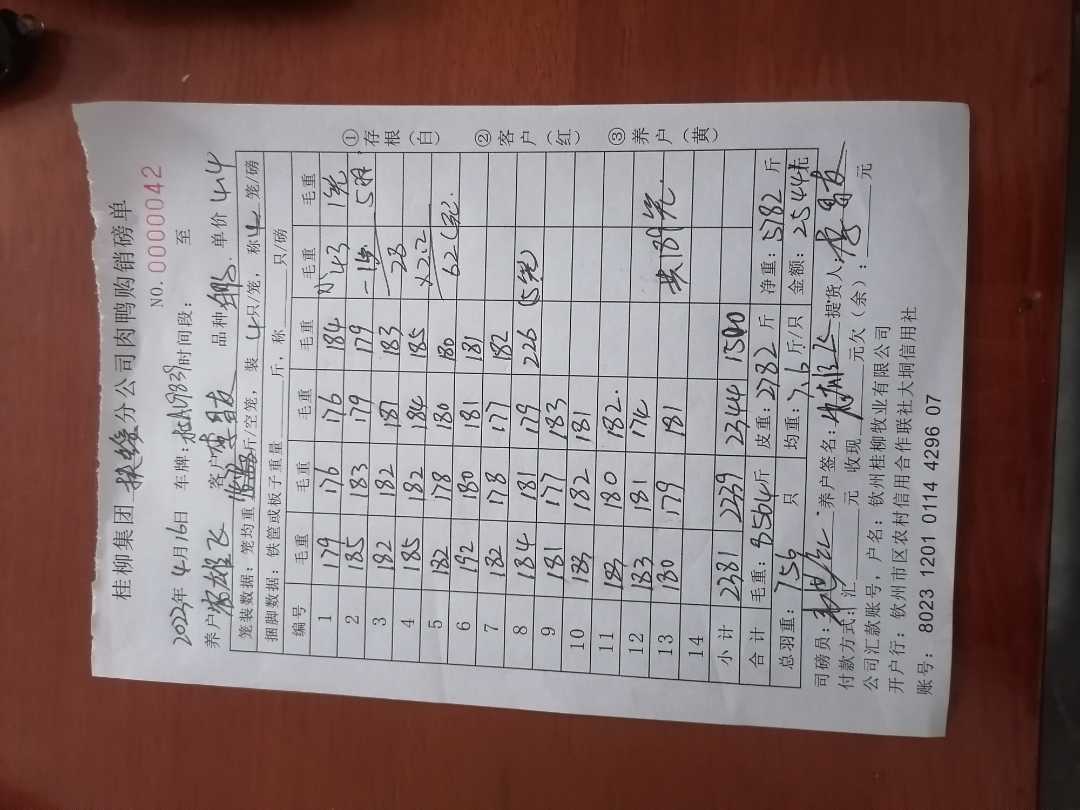 桂柳集团 扶绥分公司肉鸭购销磅单
NO. 0000042
2023年 4月16日 车牌: 时间段: 至
养户 客户 品种 单价 4.4
笼装数据:笼均重 斤/空笼,装 4只/笼,称 4 笼/磅
捆脚数据:铁筐或板子重量 斤,称 只/磅
编号 毛重 毛重 毛重 毛重 毛重 毛重
1 179 176 176 184 43 1笼
2 185 183 179 179 5羽
3 182 182 187 183 28
4 185 182 184 185 ×2.2
5 182 178 180 180 62
6 192 180 181 181
7 182 178 177 182
8 184 181 179 226 5笼
9 181 177 183
10 183 182 181
11 183 180 182
12 183 181 174
13 180 179 181 共189笼
14
小计 2381 2339 2344 1500
合计 毛重:8564斤 皮重:2782 斤 净重:5782 斤
总羽重: 756 只 均重:7.6斤/只 金额:25441元
司磅员: 养户签名: 提货人:
付款方式:汇 元 收现 元欠(余): 元
公司汇款账号,户名:钦州桂柳牧业有限公司
开户行:钦州市区农村信用合作联社大垌信用社
账号:8023 1201 0114 4296 07
①存根(白)
②客户(红)
③养户(黄)